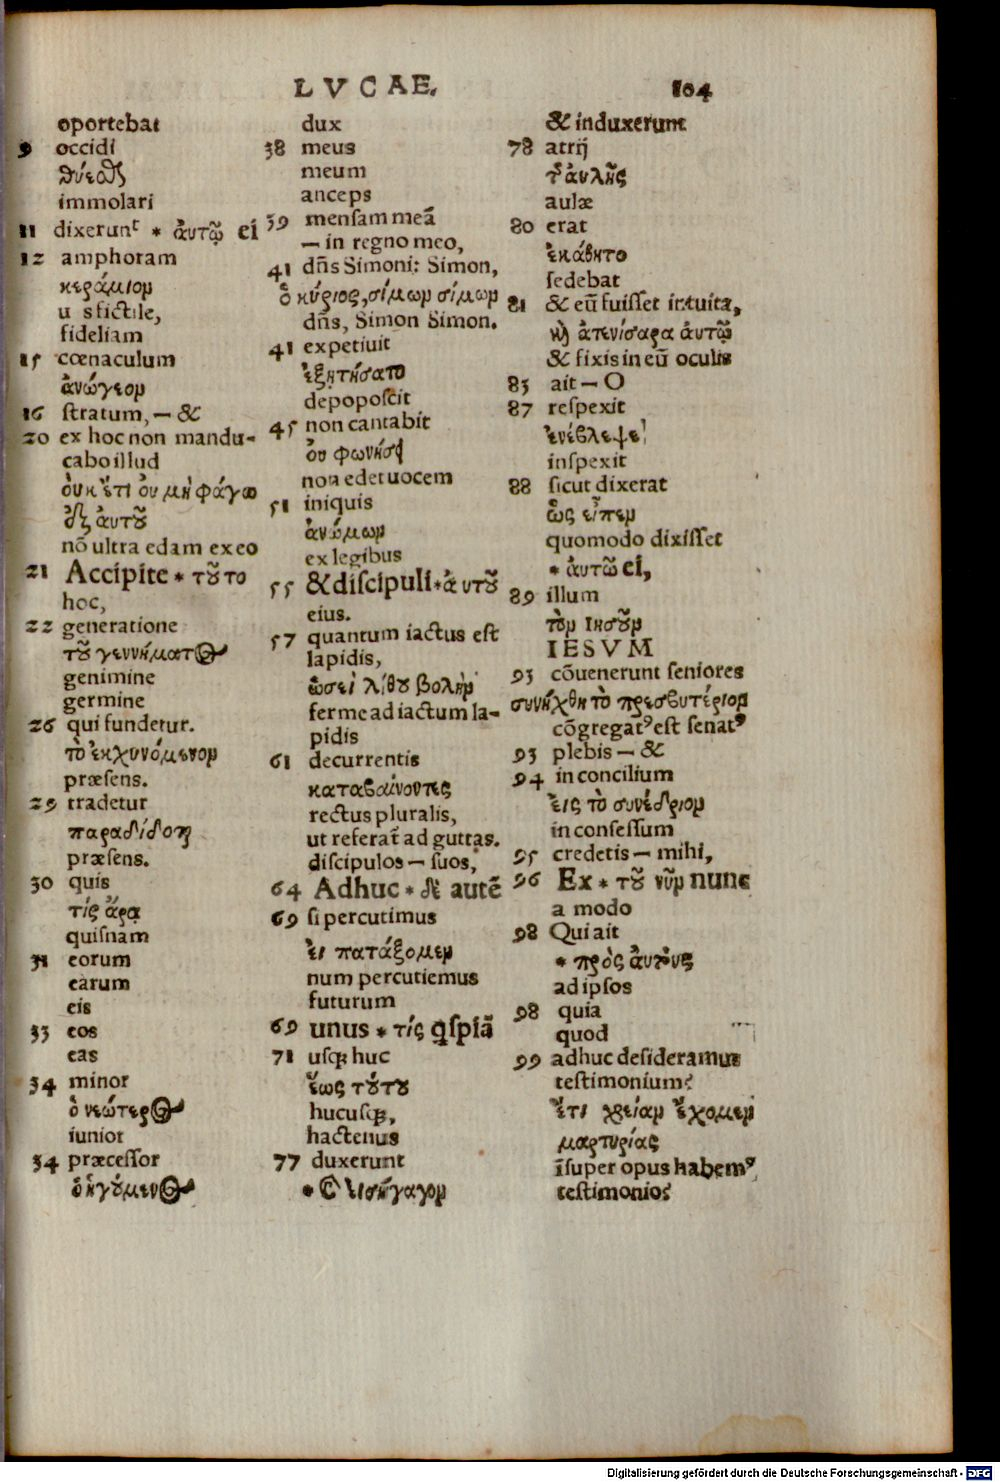 LVCAE.
104
oportebat
9 occidi
θύεσθαι
immolari
11 dixerunt * ἀυτῷ ei
12 amphoram
κεράμιον
u s fictile,
fideliam
15 cœnaculum
ἀνώγεον
16 stratum, — &
20 ex hoc non mandu-
cabo illud
ὀυκ ἔτι ὀυ μὴ φάγω
ἐξ ἀυτοῦ
nõ ultra edam ex eo
21 Accipite * τοῦτο
hoc,
22 generatione
τοῦ γεννήματος
genimine
germine
26 qui fundetur.
τὸ ἐκχυνόμενον
præsens.
29 tradetur
παραδίδοται
præsens.
30 quis
τίς ἄρα
quisnam
31 eorum
earum
eis
33 eos
eas
34 minor
ὁ νεώτερος
iunior
34 præcessor
ὁ ἡγούμενος
dux
38 meus
meum
anceps
39 mensam meã
— in regno meo,
41 dñs Simoni: Simon,
ὁ κύριος, σίμων σίμων
dñs, Simon Simon.
41 expetiuit
ἐξητήσατο
depoposcit
45 non cantabit
ὀυ φωνήσει
non edet uocem
51 iniquis
ἀνόμων
exlegibus
55 & discipuli * ἀυτοῦ
eius.
57 quantum iactus est
lapidis,
ὡσεὶ λίθου βολὴν
ferme ad iactum la-
pidis
61 decurrentis
καταβαίνοντες
rectus pluralis,
ut referat̃ ad guttas.
discipulos — suos,
64 Adhuc * δὲ autẽ
69 si percutimus
ἐι πατάξομεν
num percutiemus
futurum
69 unus * τίς qspiã
71 usq; huc
ἕως τούτου
hucusq;,
hactenus
77 duxerunt
* & ἐισήγαγον
& induxerunt
78 atrij
τῆς ἀυλῆς
aulæ
80 erat
ἐκάθητο
sedebat
81 & eũ fuisset intuita,
καὶ ἀτενίσασα ἀυτῷ
& fixis in eũ oculis
83 ait — O
87 respexit
ἐνέβλεψε
inspexit
88 sicut dixerat
ὡς εἶπεν
quomodo dixisset
* ἀυτῷ ei,
89 illum
τὸν Ιησοῦν
IESVM
93 cõuenerunt seniores
συνήχθη τὸ πρεσβυτέριον
cõgregatꝰ est senatꝰ
93 plebis — &
94 in concilium
ἐις τὸ συνέδριον
in consessum
95 credetis — mihi,
96 Ex * τοῦ νῦν nunc
a modo
98 Qui ait
* πρὸς ἀυτοὺς
ad ipsos
98 quia
quod
99 adhuc desideramus
testimonium?
ἔτι χρείαν ἔχομεν
μαρτυρίας
ĩsuper opus habemꝰ
testimonio?
Digitalisierung gefördert durch die Deutsche Forschungsgemeinschaft - DFG